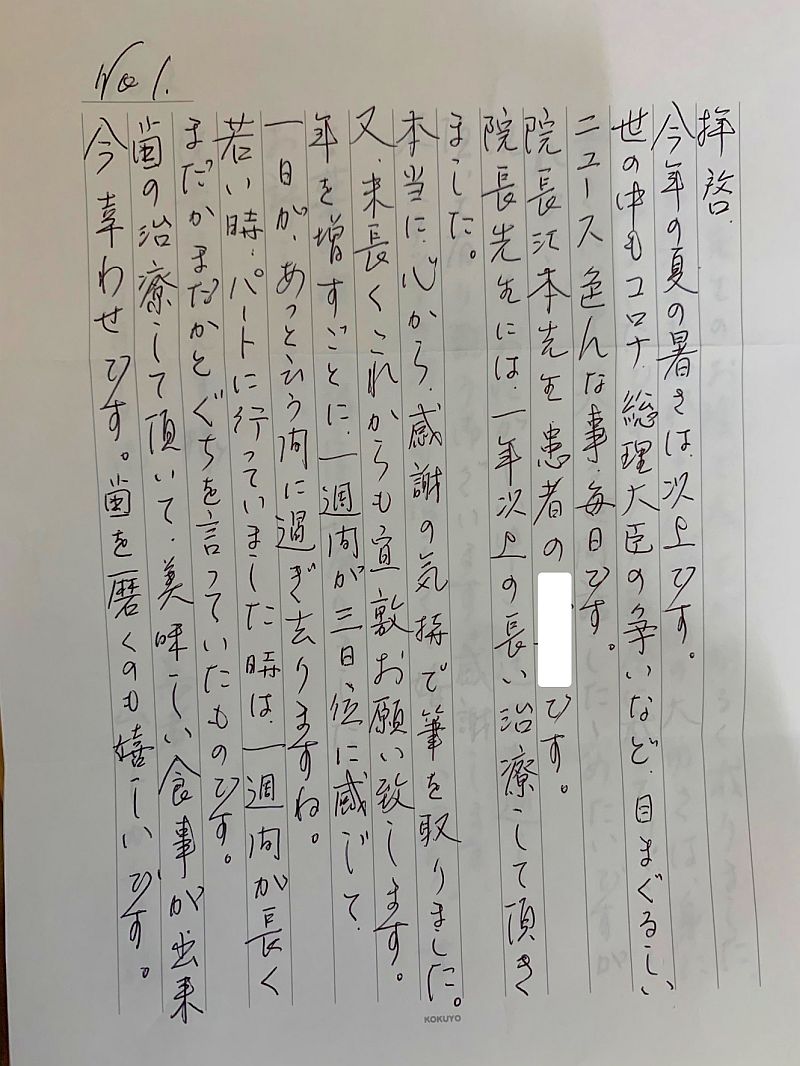 No 1.
拝啓.
今年の夏の暑さは、次以上です。
世の中もコロナ、総理大臣の争いなど、目まぐるしい
ニュース色んな事、毎日です。
院長江本先生患者の です。
院長先生には、一年以上の長い治療して頂き
ました。
本当に、心から、感謝の気持で筆を取りました。
又、末長くこれからも宜敷お願い致します。
年を増すごとに、一週間が三日位に感じて、
一日が、あっと言う間に過ぎ去りますね。
若い時、パートに行っていました時は、一週間が長く
まだかまだかとぐちを言っていたものです。
歯の治療して頂いて、美味しい食事が出来
今幸わせです。歯を磨くのも嬉しいです。
KOKUYO